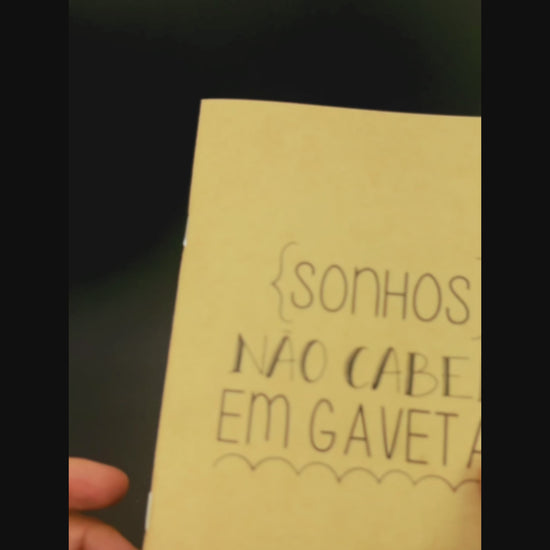 {SONHOS}
NÃO CABE
EM GAVETA